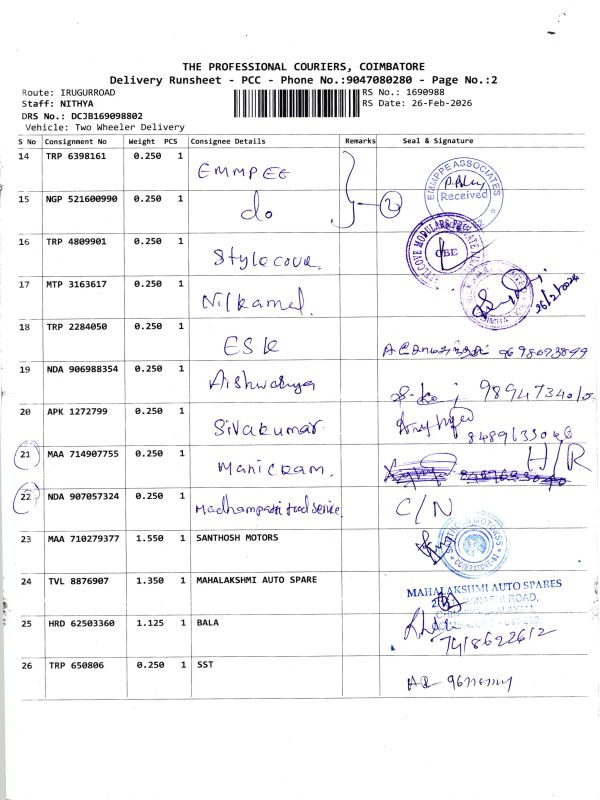 THE PROFESSIONAL COURIERS, COIMBATORE
Delivery Runsheet - PCC - Phone No.:9047080280 - Page No.:2
Route: IRUGURROAD
Staff: NITHYA
DRS No.: DCJB169098802
Vehicle: Two Wheeler Delivery
RS No.: 1690988
RS Date: 26-Feb-2026
S No Consignment No Weight PCS Consignee Details Remarks Seal & Signature
14 TRP 6398161 0.250 1 EMMPEE EMMPPE ASSOCIATES Received
15 NGP 521600990 0.250 1 do 2
16 TRP 4809901 0.250 1 Stylecove.
17 MTP 3163617 0.250 1 Nilkamal. 26/2/2026
18 TRP 2284050 0.250 1 ESK
19 NDA 906988354 0.250 1 Aishwarya
20 APK 1272799 0.250 1 Sivakumar
21 MAA 714907755 0.250 1 Manickam. H/R
22 NDA 907057324 0.250 1 Madhampatti food service C/N
23 MAA 710279377 1.550 1 SANTHOSH MOTORS
24 TVL 8876907 1.350 1 MAHALAKSHMI AUTO SPARE MAHALAKSHMI AUTO SPARES
25 HRD 62503360 1.125 1 BALA 7418622612
26 TRP 650806 0.250 1 SST